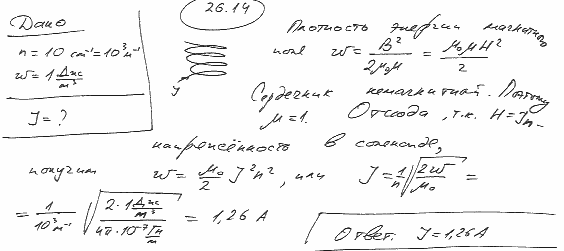 26.14
Дано
n = 10 см⁻¹ = 10³ м⁻¹
w = 1 Дж/м³
J = ?
J
Плотность энергии магнитного
поля w = B²/2μ₀μ = μ₀μH²/2
Сердечник немагнитный. Поэтому
μ = 1. Отсюда, т.к. H = Jn –
напряжённость в соленоиде,
получим w = μ₀/2 J²n², или J = 1/n √(2w/μ₀) =
= 1/10³ м⁻¹ √(2·1 Дж/м³ / 4π·10⁻⁷ Гн/м) = 1,26 А
Ответ: J = 1,26 А